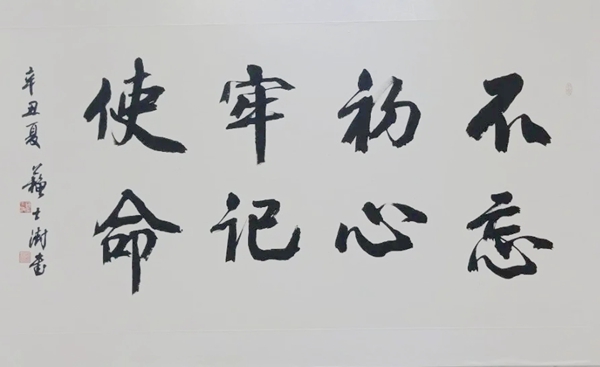 不忘
初心
牢记
使命
辛丑夏 苏士澍书